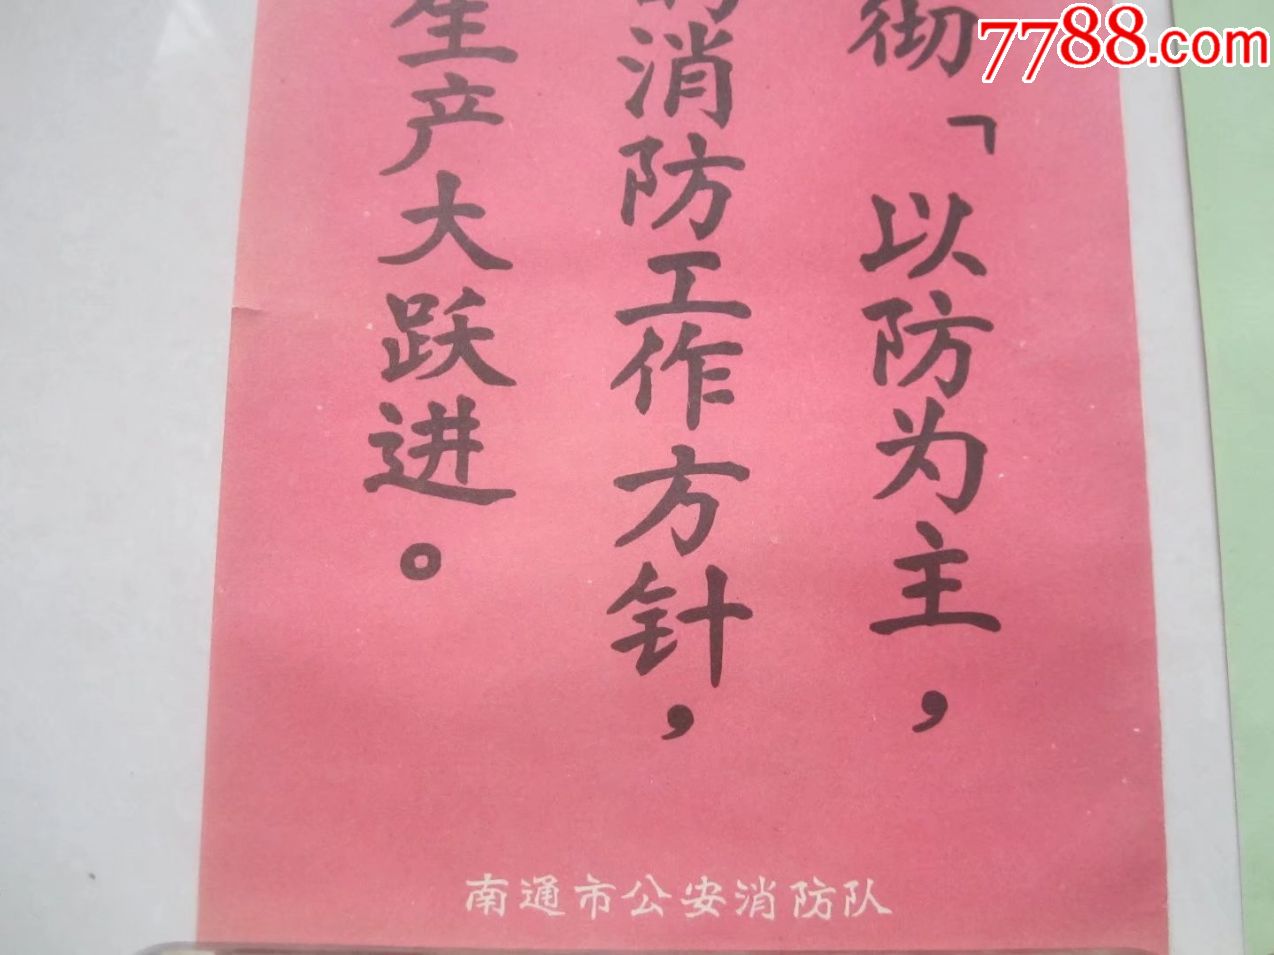 彻「以防为主，
的消防工作方针，
生产大跃进。
南通市公安消防队
7788.com